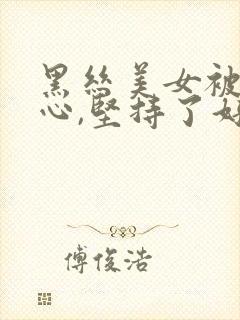 黑丝美女被
心,坚持了好
傅俊浩